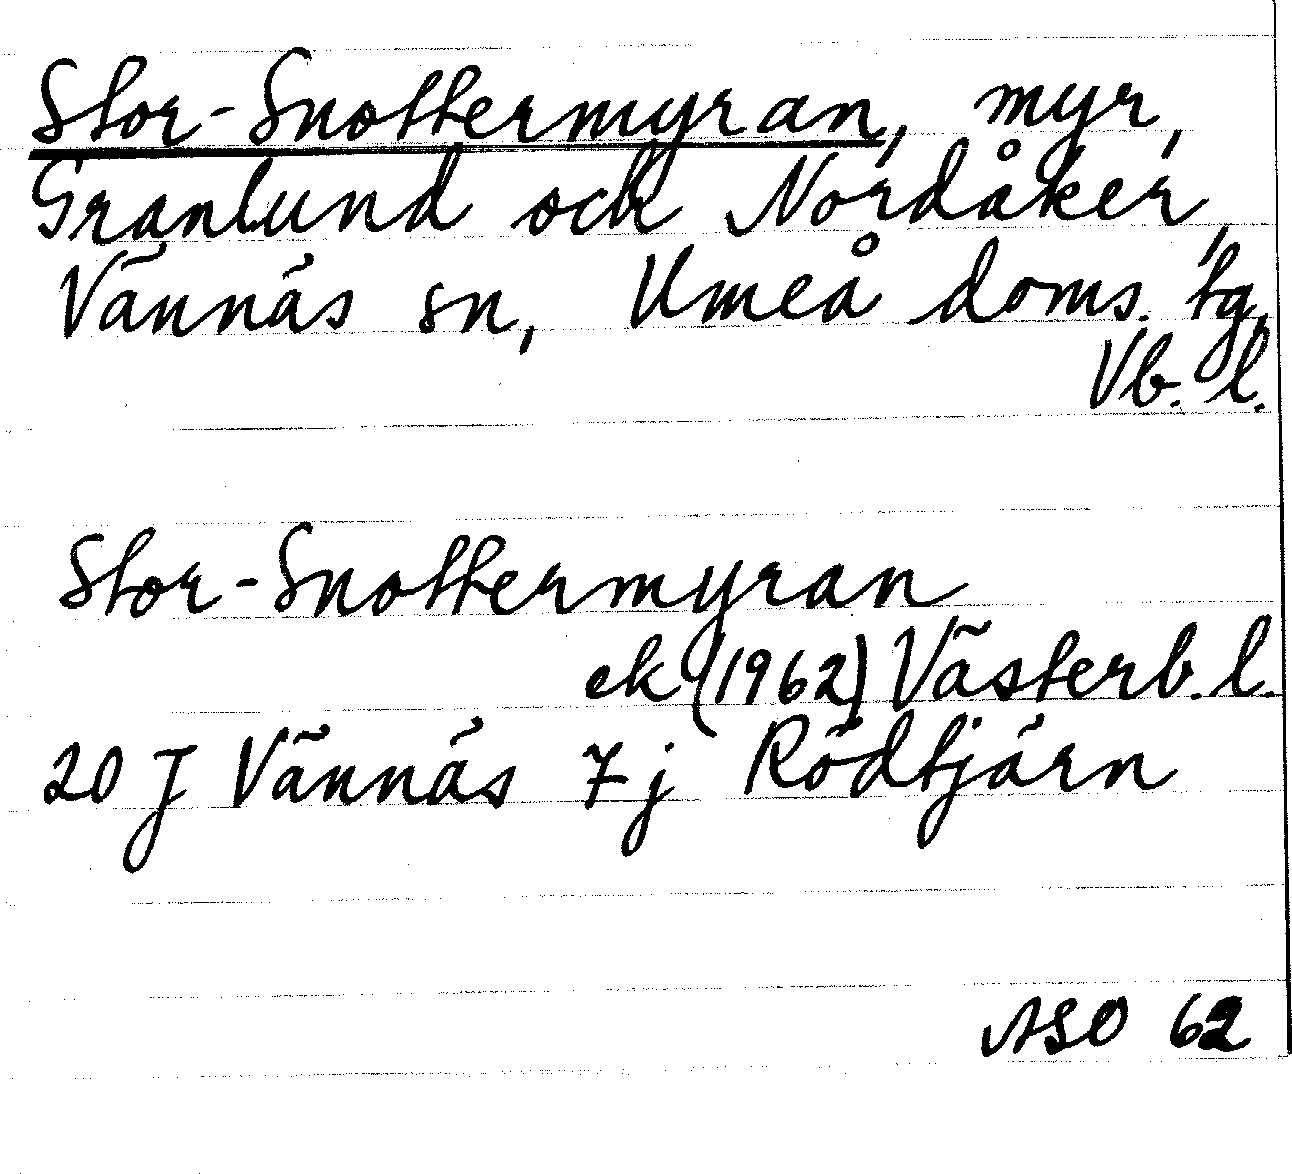 Stor-Snottermyran, myr,
Granlund och Nordåker,
Vännäs sn, Umeå doms. tg,
Vb. l.
Stor-Snottermyran
ek (1962) Västerb. l.
20 J Vännäs 7 j Rödtjärn
ASO 62